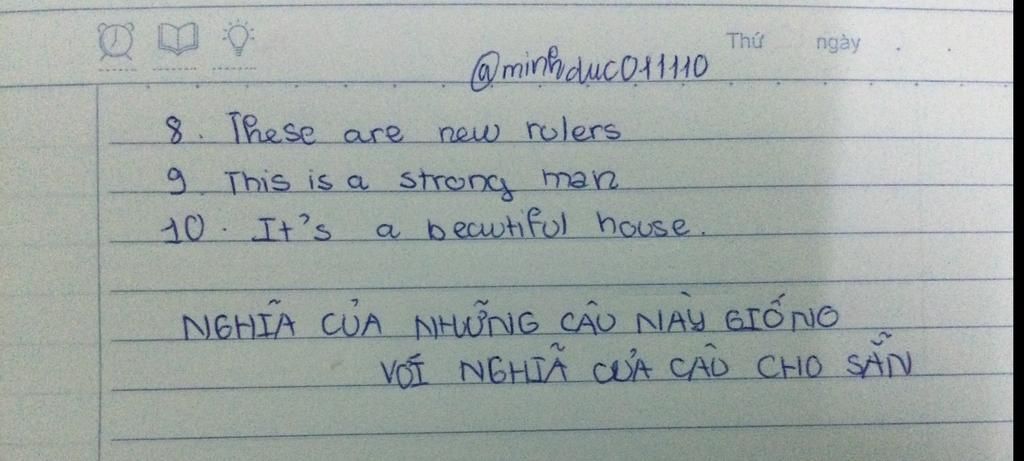 Thứ ngày . .
@minhduc011110
8. These are new rulers
9. This is a strong man
10. It's a beautiful house.
NGHĨA CỦA NHỮNG CÂU NÀY GIỐNG
VỚI NGHĨA CỦA CÂU CHO SẴN